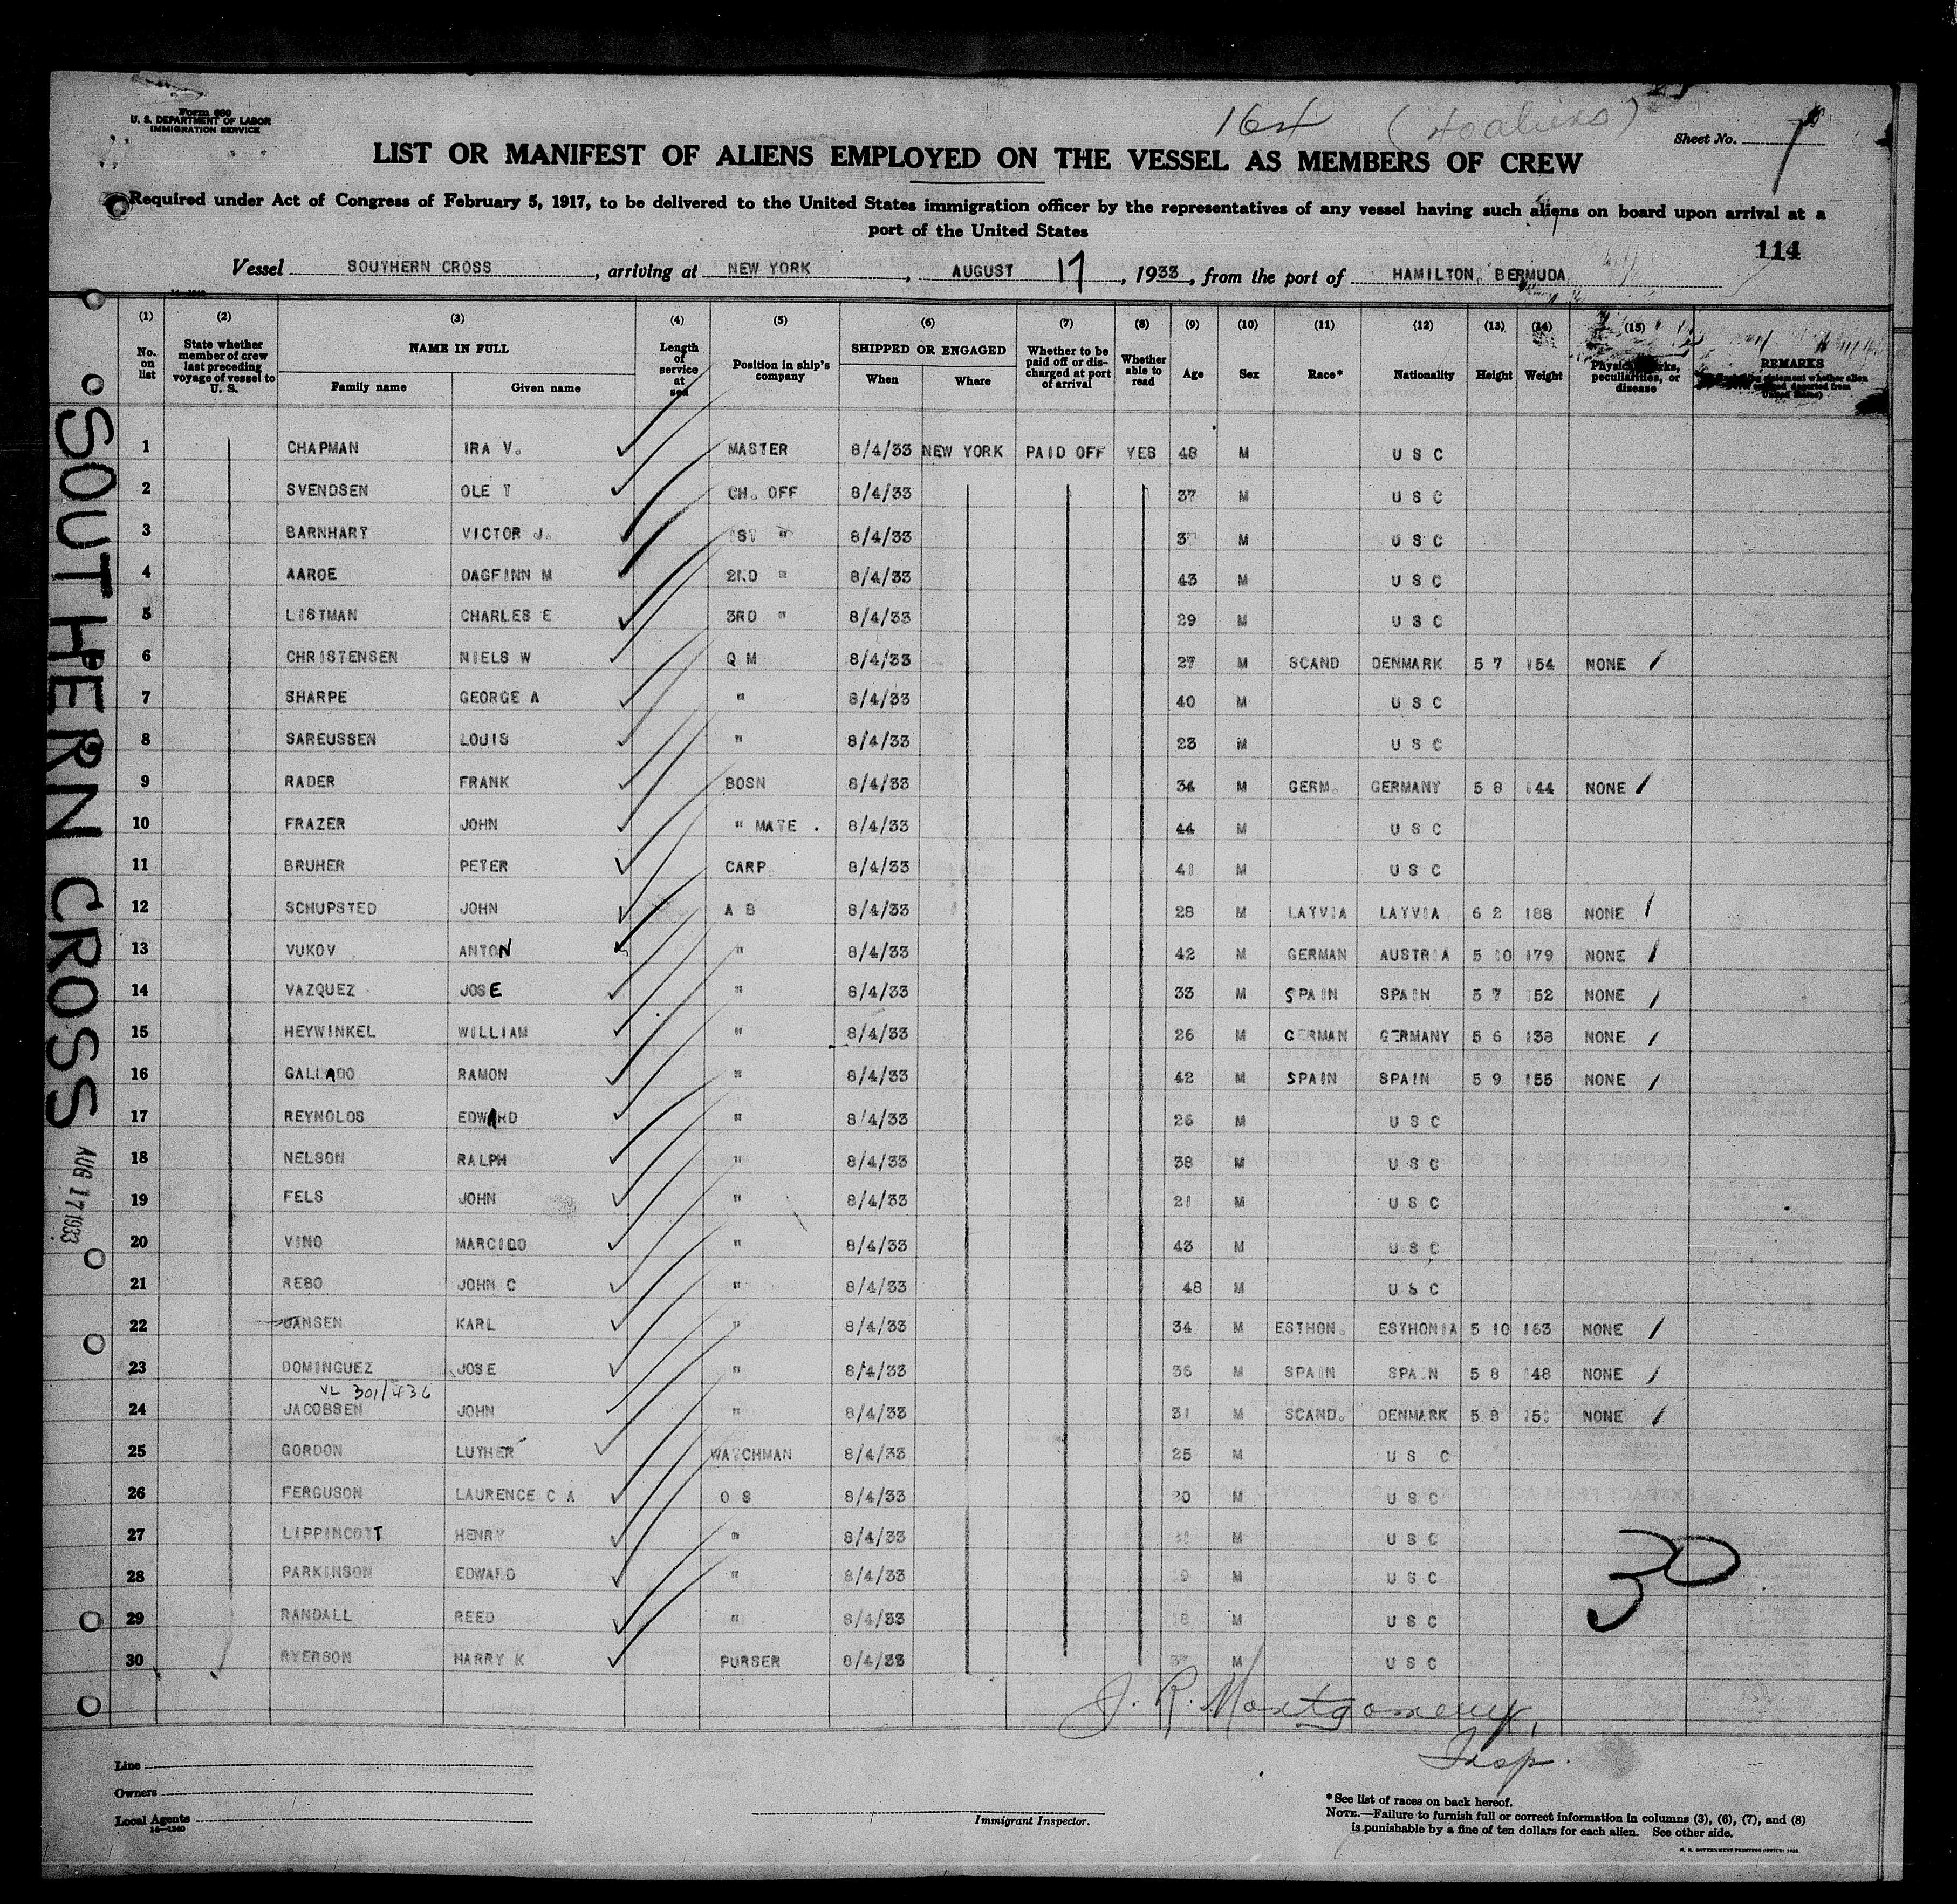 Form 680
U. S. DEPARTMENT OF LABOR
IMMIGRATION SERVICE
164 (40 aliens)
Sheet No. 1
LIST OR MANIFEST OF ALIENS EMPLOYED ON THE VESSEL AS MEMBERS OF CREW
Required under Act of Congress of February 5, 1917, to be delivered to the United States immigration officer by the representatives of any vessel having such aliens on board upon arrival at a
port of the United States
114
Vessel SOUTHERN CROSS, arriving at NEW YORK, AUGUST 17, 1933, from the port of HAMILTON. BERMUDA
(1) (2) (3) (4) (5) (6) (7) (8) (9) (10) (11) (12) (13) (14) (15)
No. on list
State whether member of crew last preceding voyage of vessel to U. S.
NAME IN FULL
Family name
Given name
Length of service at sea
Position in ship's company
SHIPPED OR ENGAGED
When
Where
Whether to be paid off or discharged at port of arrival
Whether able to read
Age
Sex
Race*
Nationality
Height
Weight
Physical marks, peculiarities, or disease
REMARKS
statement whether alien
deported from
United States)
1 CHAPMAN IRA V. MASTER 8/4/33 NEW YORK PAID OFF YES 48 M U S C
2 SVENDSEN OLE T CH. OFF 8/4/33 37 M U S C
3 BARNHART VICTOR J. 1ST " 8/4/33 M U S C
4 AAROE DAGFINN M 2ND " 8/4/33 43 M U S C
5 LISTMAN CHARLES E 3RD " 8/4/33 29 M U S C
6 CHRISTENSEN NIELS W Q M 8/4/33 27 M SCAND DENMARK 5 7 154 NONE
7 SHARPE GEORGE A " 8/4/33 40 M U S C
8 SAREUSSEN LOUIS " 8/4/33 23 M U S C
9 RADER FRANK BOSN 8/4/33 34 M GERM. GERMANY 5 8 144 NONE
10 FRAZER JOHN " MATE . 8/4/33 44 M U S C
11 BRUHER PETER CARP. 8/4/33 41 M U S C
12 SCHUPSTED JOHN A B 8/4/33 28 M LATVIA LATVIA 6 2 188 NONE
13 VUKOV ANTON " 8/4/33 42 M GERMAN AUSTRIA 5 10 179 NONE
14 VAZQUEZ JOSE " 8/4/33 33 M SPAIN SPAIN 5 7 152 NONE
15 HEYWINKEL WILLIAM " 8/4/33 26 M GERMAN GERMANY 5 6 138 NONE
16 GALLADO RAMON " 8/4/33 42 M SPAIN SPAIN 5 9 155 NONE
17 REYNOLDS EDWARD " 8/4/33 26 M U S C
18 NELSON RALPH " 8/4/33 38 M U S C
19 FELS JOHN " 8/4/33 21 M U S C
20 VINO " 8/4/33 43 M U S C
21 REBO JOHN C " 8/4/33 48 M U S C
22 JANSEN KARL " 8/4/33 34 M ESTHON. ESTHONIA 5 10 163 NONE
23 DOMINGUEZ JOSE " 8/4/33 36 M SPAIN SPAIN 5 8 148 NONE
VL 301/436
24 JACOBSEN JOHN " 8/4/33 31 M SCAND. DENMARK NONE
25 GORDON LUTHER WATCHMAN 8/4/33 25 M U S C
26 FERGUSON LAURENCE C A O S 8/4/33 20 M U S C
27 LIPPINCOTT HENRY " 8/4/33 M U S C
28 PARKINSON EDWARD " 8/4/33 M U S C
29 RANDALL REED " 8/4/33 18 M U S C
30 RYERSON HARRY K PURSER 8/4/33 37 M U S C
30
J. R. Montgomery,
Insp.
SOUTHERN CROSS
AUG 17 1933
Line
Owners
Local Agents
14—1240
Immigrant Inspector.
*See list of races on back hereof.
NOTE.—Failure to furnish full or correct information in columns (3), (6), (7), and (8)
is punishable by a fine of ten dollars for each alien. See other side.